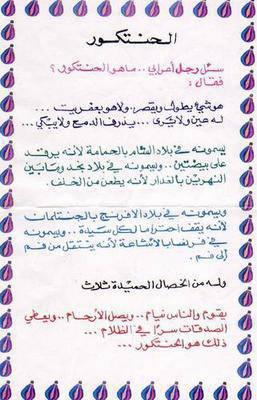 الحنتكور
سئل رجل أعرابي .. ما هو الحنتكور ؟
فقال :
هو شيئ يطول ويقصر .. ولا هو بعفريت ...
له عين ولا يرى ... يذرف الدمع ولا يبكي ...
يسمونه في بلاد الشام بالحمامة لأنه يرقد
على بيضتين .. ويسمونه في بلاد نجد وما بين
النهرين بالغدار لأنه يطعن من الخلف .
ويسمونه في بلاد الافرنج بالجنتلمان
لأنه يقف احتراماً لكل سيدة .. ويسمونه
في فرنسا بالاشاعة لأنه ينتقل من فم
إلى فم .
وله من الخصال الحميدة ثلاث
يقوم والناس نيام .. ويصل الأرحام .. ويعطي
الصدقات سراً في الظلام ...
ذلك هو الحنتكور ...